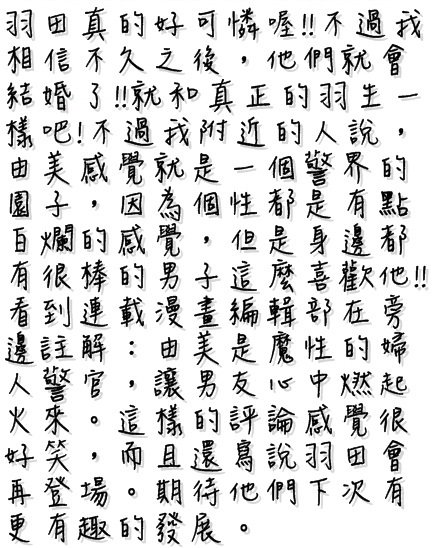 羽田真的好可憐喔!!不過我
相信不久之後，他們就會
結婚了!!就和真正的羽生一
樣吧!不過我附近的人說，
由美感覺就是一個警界的
園子，因為個性都是有點
白爛的感覺，但是身邊都
有很棒的男子這麼喜歡他!!
看到連載漫畫編輯部在旁
邊註解：由美是魔性的婦
人警官，讓男友心中燃起
火來。這樣的評論感覺很
好笑，而且還寫說羽田會
再登場。期待他們下次有
更有趣的發展。